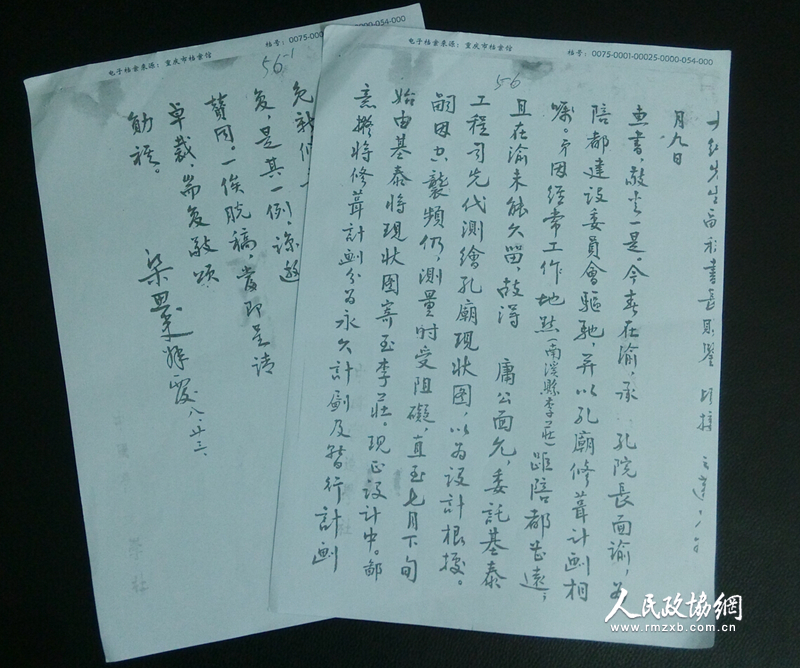 电子档案来源：重庆市档案馆
档号：0075-0001-00025-0000-054-000
56
月九日
惠书，敬悉一是。今春在渝，承 孔院長面諭，为
陪都建设委員會驅馳，并以孔廟修葺计画相
嘱。弟因经常工作地点（南溪縣李莊）距陪都甚遠，
且在渝未能久留，故得 庸公面允，委託基泰
工程司先代测繪孔廟現狀图，以为设计根據。
嗣因空襲頻仍，测量时受阻礙，直至七月下旬
始由基泰将现状图寄至李莊，现正设计中。鄙
意擬将修葺计画分为永久计劃及暫行计画
电子档案来源：重庆市档案馆
档号：0075-0001-00025-0000-054-000
56-1
复，是其一例。諒邀
贊同。一俟脱稿，當即呈請
卓裁，耑复敬頌
勛祺。
梁思成 八.廿三.
人民政协網
www.rmzxb.com.cn